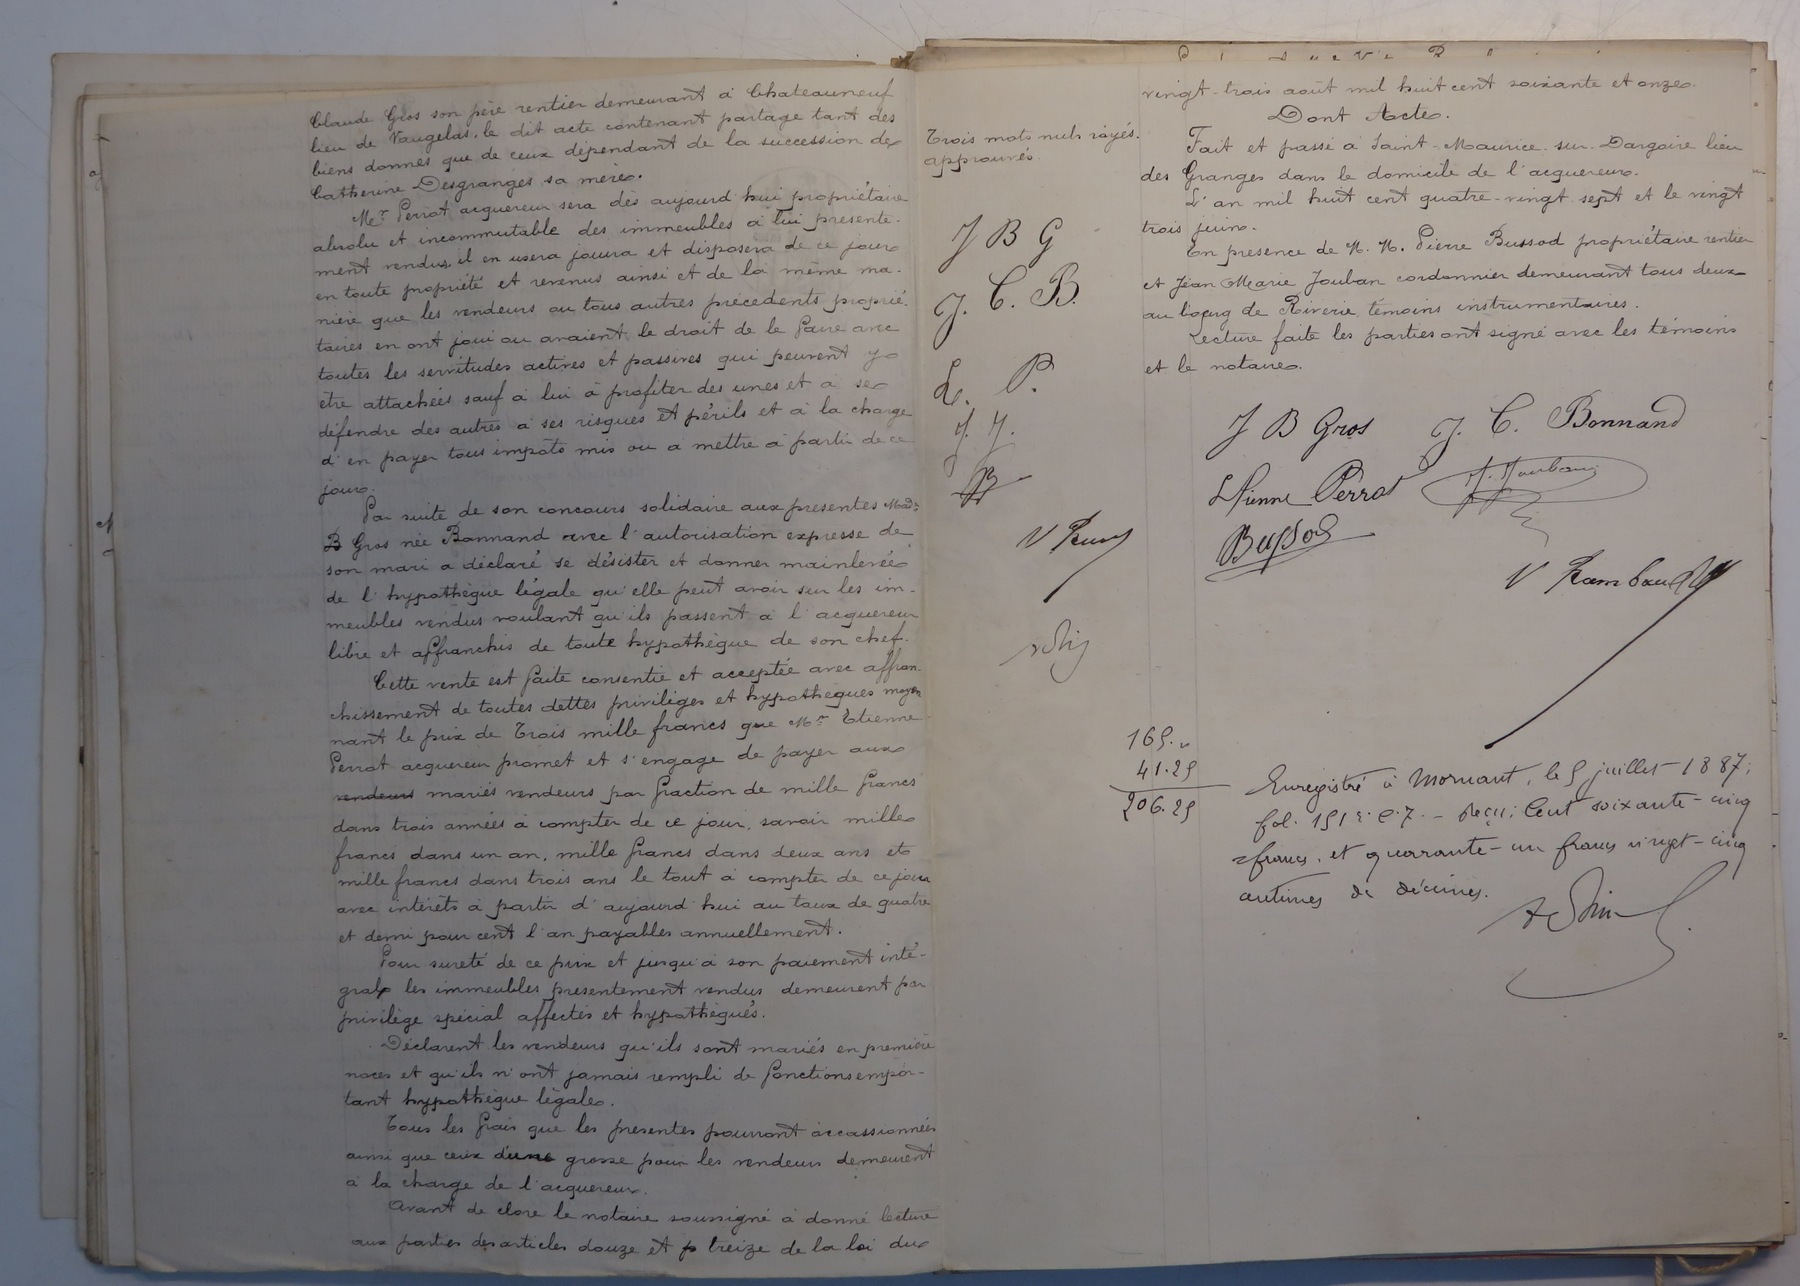 Claude Gros son père rentier demeurant à Chateauneuf
lieu de Vaugelas, le dit acte contenant partage tant des
biens donnés que de ceux dépendant de la succession de
Catherine Desgranges sa mère.
Mr Perrot acquereur sera dès aujourd'hui propriétaire
absolu et incommutable des immeubles à lui présente-
ment vendus, il en usera jouira et disposera de ce jour
en toute propriété et revenus ainsi et de la même ma-
nière que les vendeurs ou tous autres précédents proprié-
taires en ont joui ou avaient le droit de le faire avec
toutes les servitudes actives et passives qui peuvent y
être attachées sauf à lui à profiter des unes et à se
défendre des autres à ses risques et périls et à la charge
d'en payer tous impôts mis ou à mettre à partir de ce
jour.
Par suite de son concours solidaire aux présentes Made
B Gros née Bonnand avec l'autorisation expresse de
son mari a déclaré se désister et donner mainlevée
de l'hypothèque légale qu'elle peut avoir sur les im-
meubles vendus voulant qu'ils passent à l'acquereur
libre et affranchis de toute hypothèque de son chef.
Cette vente est faite consentie et acceptée avec affran-
chissement de toutes dettes privilèges et hypothèques moyen
nant le prix de Trois mille francs que Mr Etienne
Perrot acquereur promet et s'engage de payer aux
vendeurs mariés vendeurs par fraction de mille francs
dans trois années à compter de ce jour, savoir mille
francs dans un an, mille francs dans deux ans et
mille francs dans trois ans le tout à compter de ce jour
avec intérêts à partir d'aujourd'hui au taux de quatre
et demi pour cent l'an payables annuellement.
Pour sureté de ce prix et jusqu'à son paiement inté-
gral les immeubles présentement vendus demeurent par
privilège spécial affectés et hypothéqués.
Déclarent les vendeurs qu'ils sont mariés en première
noces et qu'ils n'ont jamais rempli de fonctions empor-
tant hypothèque légale.
Tous les frais que les présentes pourront occassionnées
ainsi que ceux d'une grosse pour les vendeurs demeurent
à la charge de l'acquereur.
Avant de clore le notaire soussigné à donné lecture
aux parties des articles douze et treize de la loi du
vingt-trois août mil huit cent soixante et onze.
Dont Acte.
Trois mots nuls rayés.
approuvés.
Fait et passé à Saint-Maurice-sur-Dargoire lieu
des Granges dans le domicile de l'acquereur.
L'an mil huit cent quatre-vingt sept et le vingt
trois juin.
En présence de M. M. Pierre Bussod propriétaire rentier
et Jean Marie Jouban cordonnier demeurant tous deux
au bourg de Riverie, témoins instrumentaires.
Lecture faite les parties ont signé avec les témoins
et le notaire.
J B G
J. C. B.
P.
J. J.
B
J B Gros J. C. Bonnand
Etienne Perrot J. Jouban
Bussod
V Rambaud
165. "
41.25
206.25
Enregistré à Mornant, le 5 juillet 1887;
fol. 151 r. c. 7. - Reçu: Cent soixante-cinq
francs, et quarante-un francs vingt-cinq
centimes de décimes.